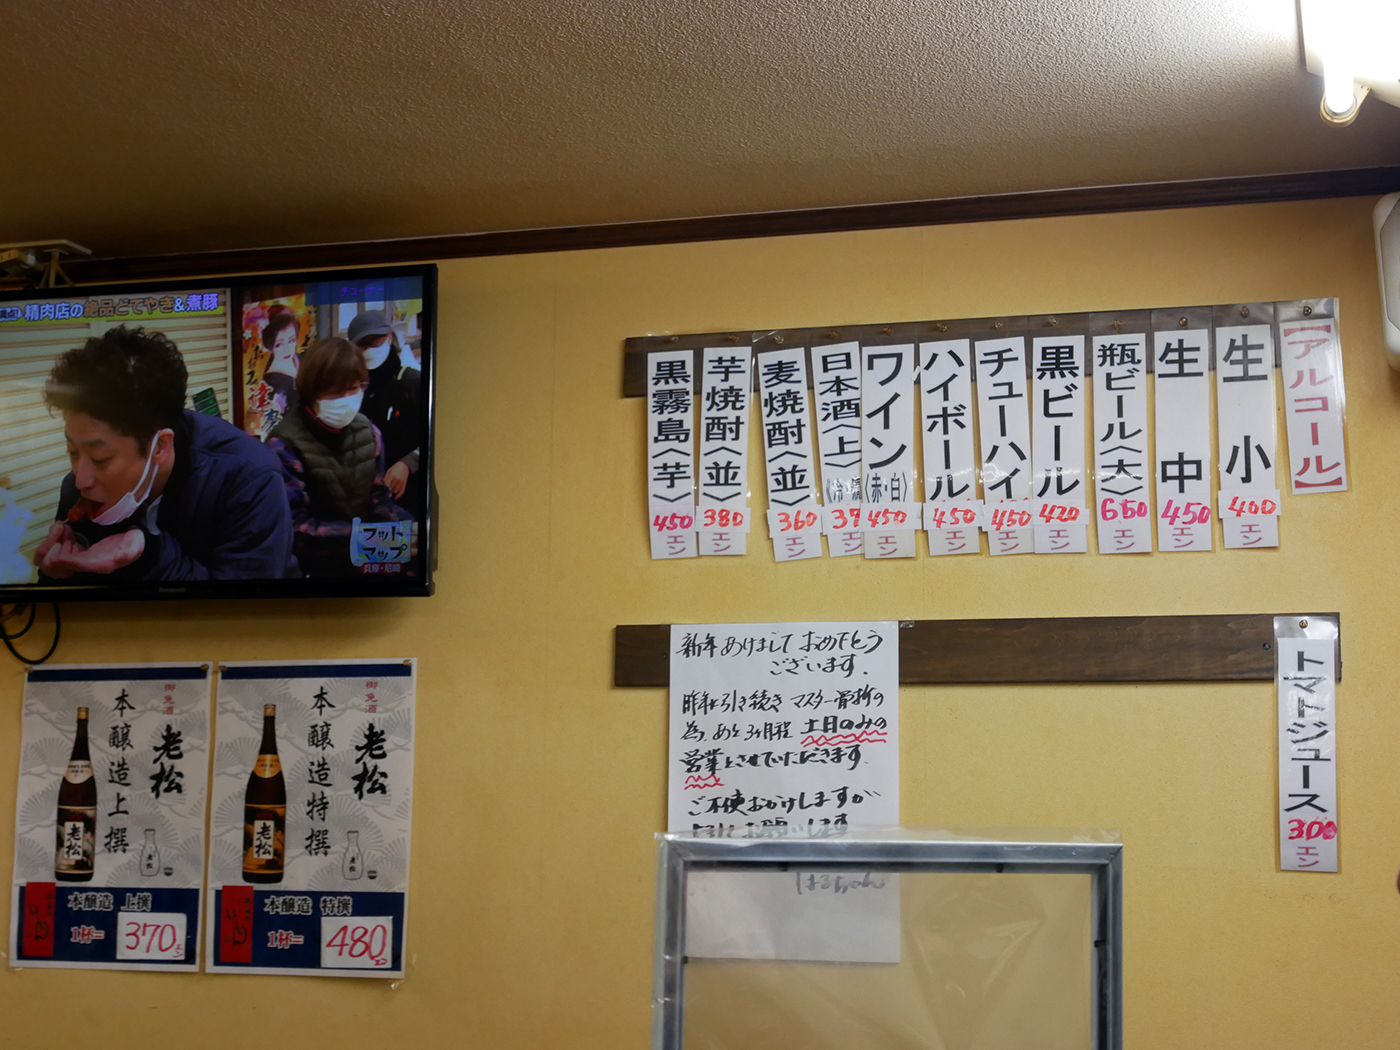 精肉店の絶品どてやき&煮豚
フット
マップ
兵庫・尼崎
Panasonic
【アルコール】
生 小
400
エン
生 中
450
エン
瓶ビール〈大〉
650
エン
黒ビール
420
エン
チューハイ
450
エン
ハイボール
450
エン
ワイン
〈赤・白〉
450
エン
日本酒〈上〉
37
エン
麦焼酎〈並〉
360
エン
芋焼酎〈並〉
380
エン
黒霧島〈芋〉
450
エン
トマトジュース
300
エン
新年あけましておめでとう
ございます.
昨年に引き続き マスター骨折の
為、あと3ヶ月程 土日のみの
営業とさせていただきます.
ご不便おかけしますが
よろしくお願いします
はるちゃん
御免酒
老松
本醸造上撰
老松
本醸造 上撰
1杯=
370
エン
御免酒
老松
本醸造特撰
老松
本醸造 特撰
1杯=
480
エン